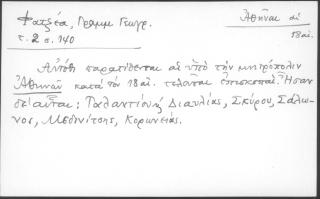 Φατζέα, Γραμμ Γεωγρ.
Ἀθῆναι αἱ
τ. 2 σ. 140
18 αἰ.
Αὐτόθι παρατίθενται αἱ ὑπὸ τὴν μητρόπολιν
Ἀθηνῶν κατὰ τὸν 18 αἰ. τελοῦσαι ἐπισκοπαί. Ἦσαν
δὲ αὗται: Ταλαντίου, Διαυλίας, Σκύρου, Σάλω-
νος, Μεδινίτσης, Κορωνείας.